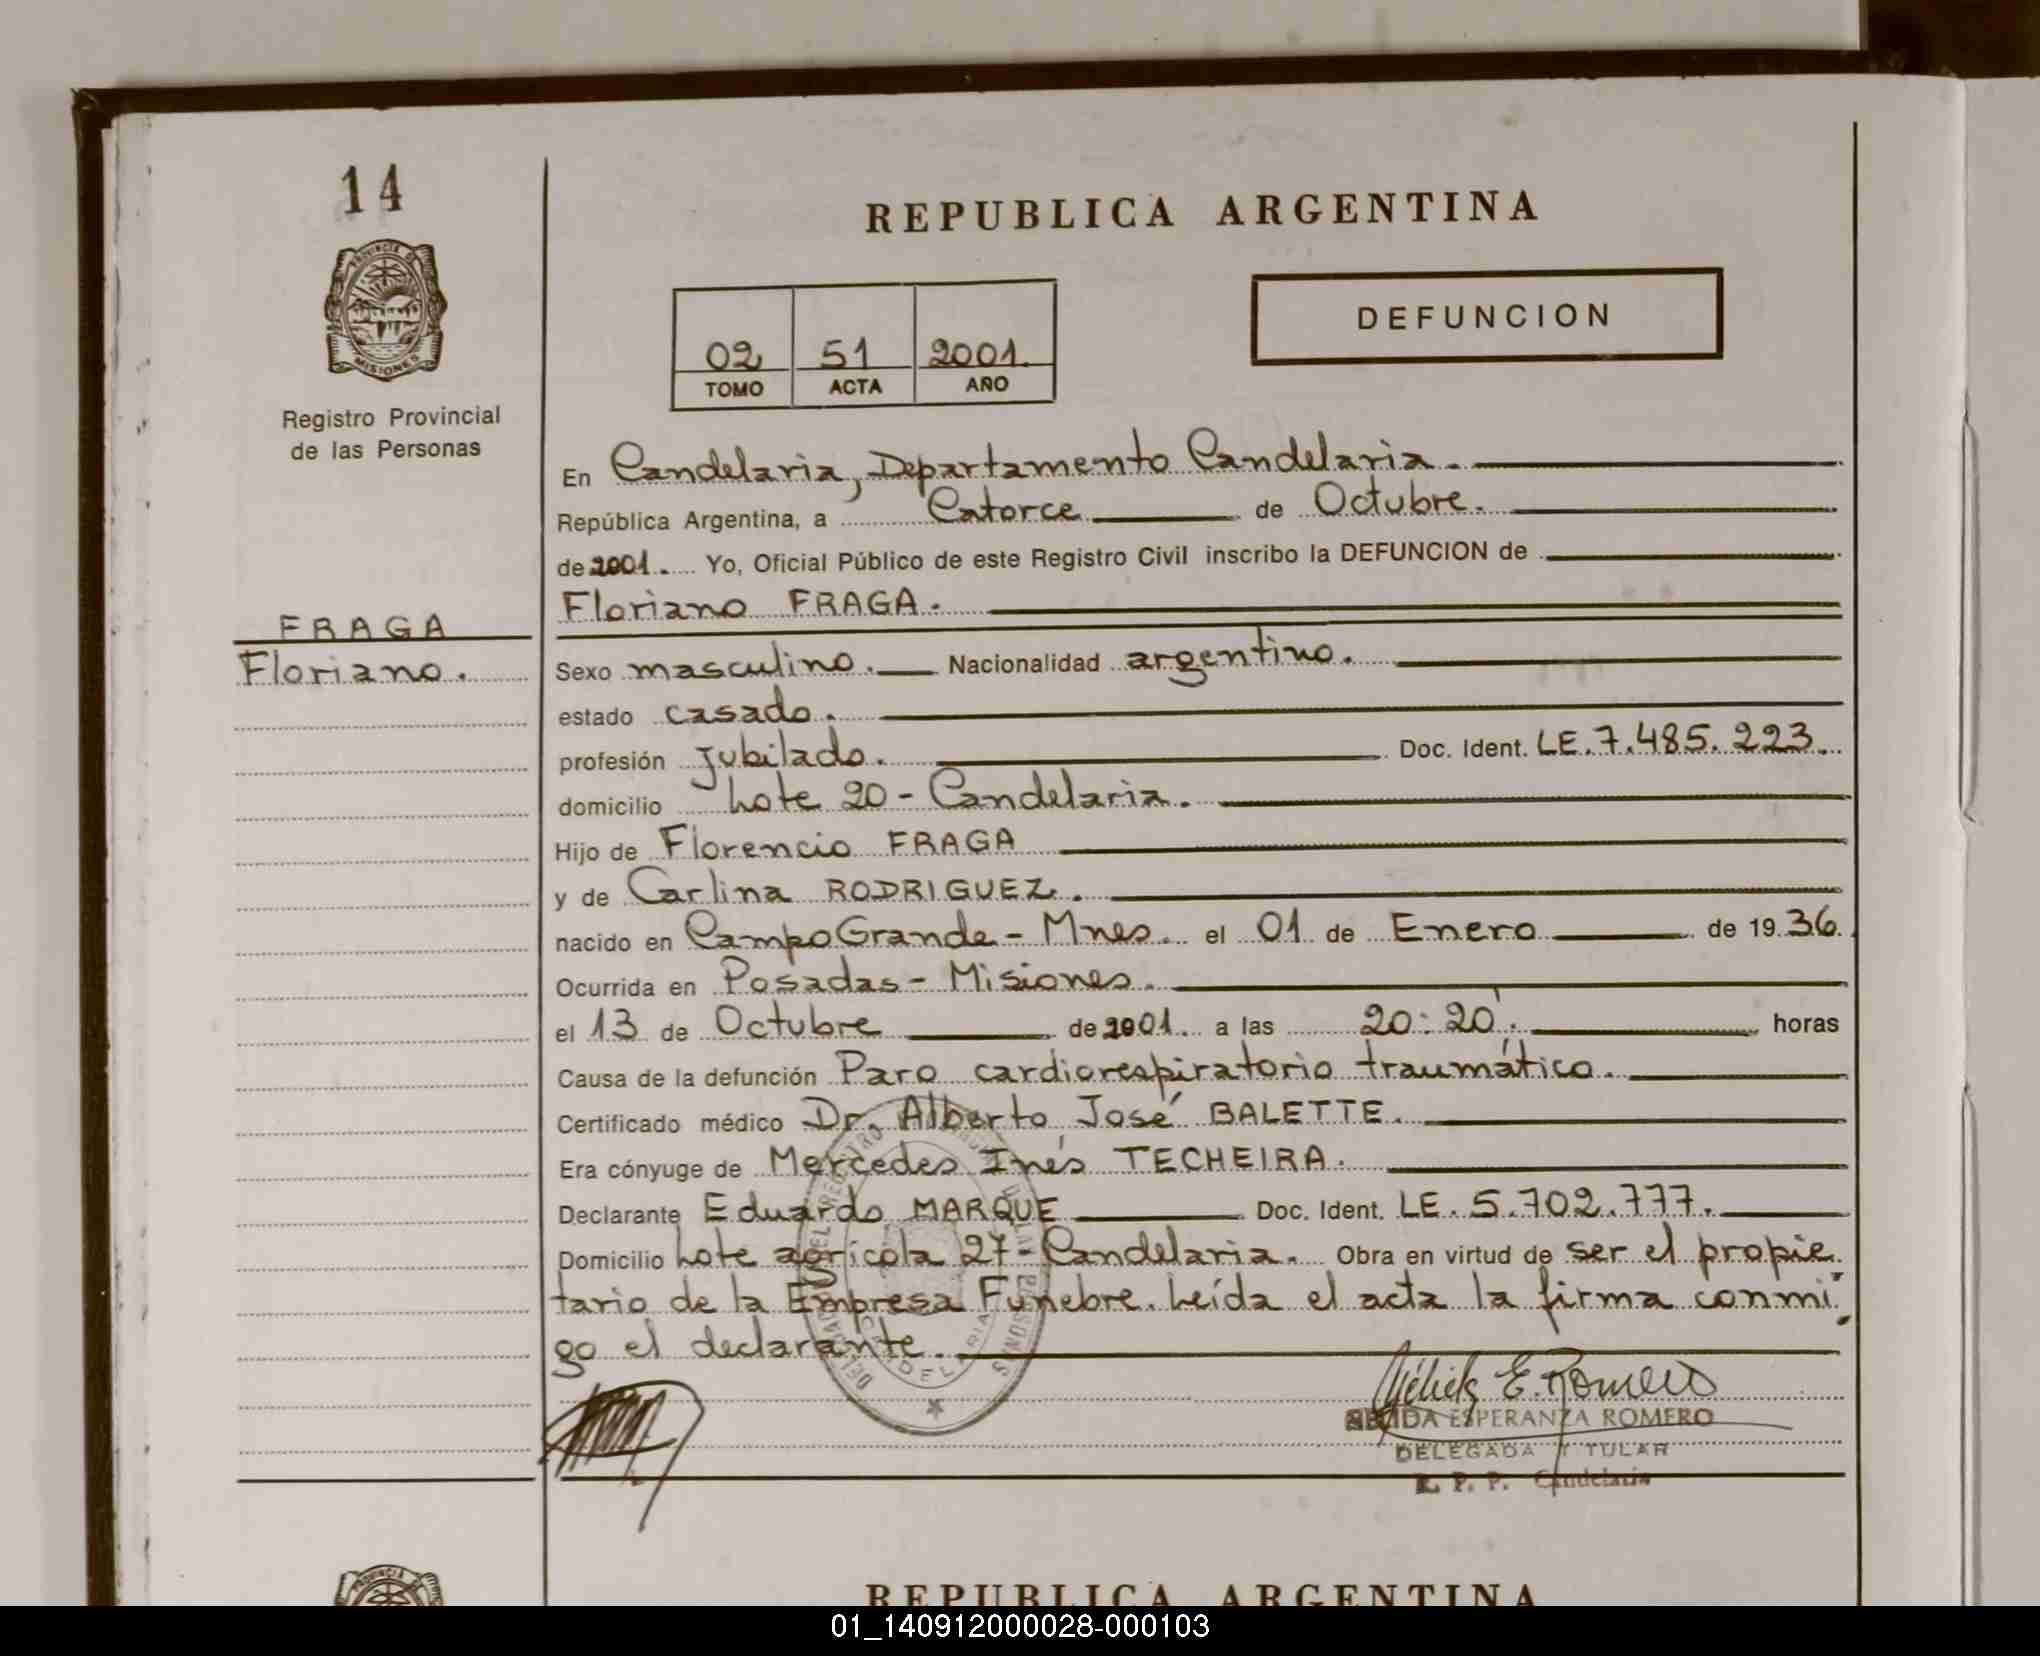 14
PROVINCIA DE
MISIONES
Registro Provincial
de las Personas
FRAGA
Floriano.
REPUBLICA ARGENTINA
02 51 2001.
TOMO ACTA AÑO
DEFUNCION
En Candelaria, Departamento Candelaria.
República Argentina, a Catorce de Octubre.
de 2001. Yo, Oficial Público de este Registro Civil inscribo la DEFUNCION de
Floriano FRAGA.
Sexo masculino. Nacionalidad argentino.
estado casado.
profesión jubilado. Doc. Ident. LE. 7.485.223.
domicilio Lote 20 - Candelaria.
Hijo de Florencio FRAGA
y de Carlina RODRIGUEZ.
nacido en Campo Grande - Mnes. el 01 de Enero de 1936.
Ocurrida en Posadas - Misiones.
el 13 de Octubre de 2001. a las 20:20'. horas
Causa de la defunción Paro cardiorespiratorio traumático.
Certificado médico Dr. Alberto José BALETTE.
Era cónyuge de Mercedes Inés TECHEIRA.
Declarante Eduardo MARQUE Doc. Ident. LE. 5.702.777.
Domicilio Lote agrícola 27 - Candelaria. Obra en virtud de ser el propie
tario de la Empresa Fúnebre. Leída el acta la firma conmi
go el declarante.
CANDELARIA
E. Romero
ESPERANZA ROMERO
DELEGADA TITULAR
R. P. P. Candelaria
REPUBLICA ARGENTINA
01_140912000028-000103